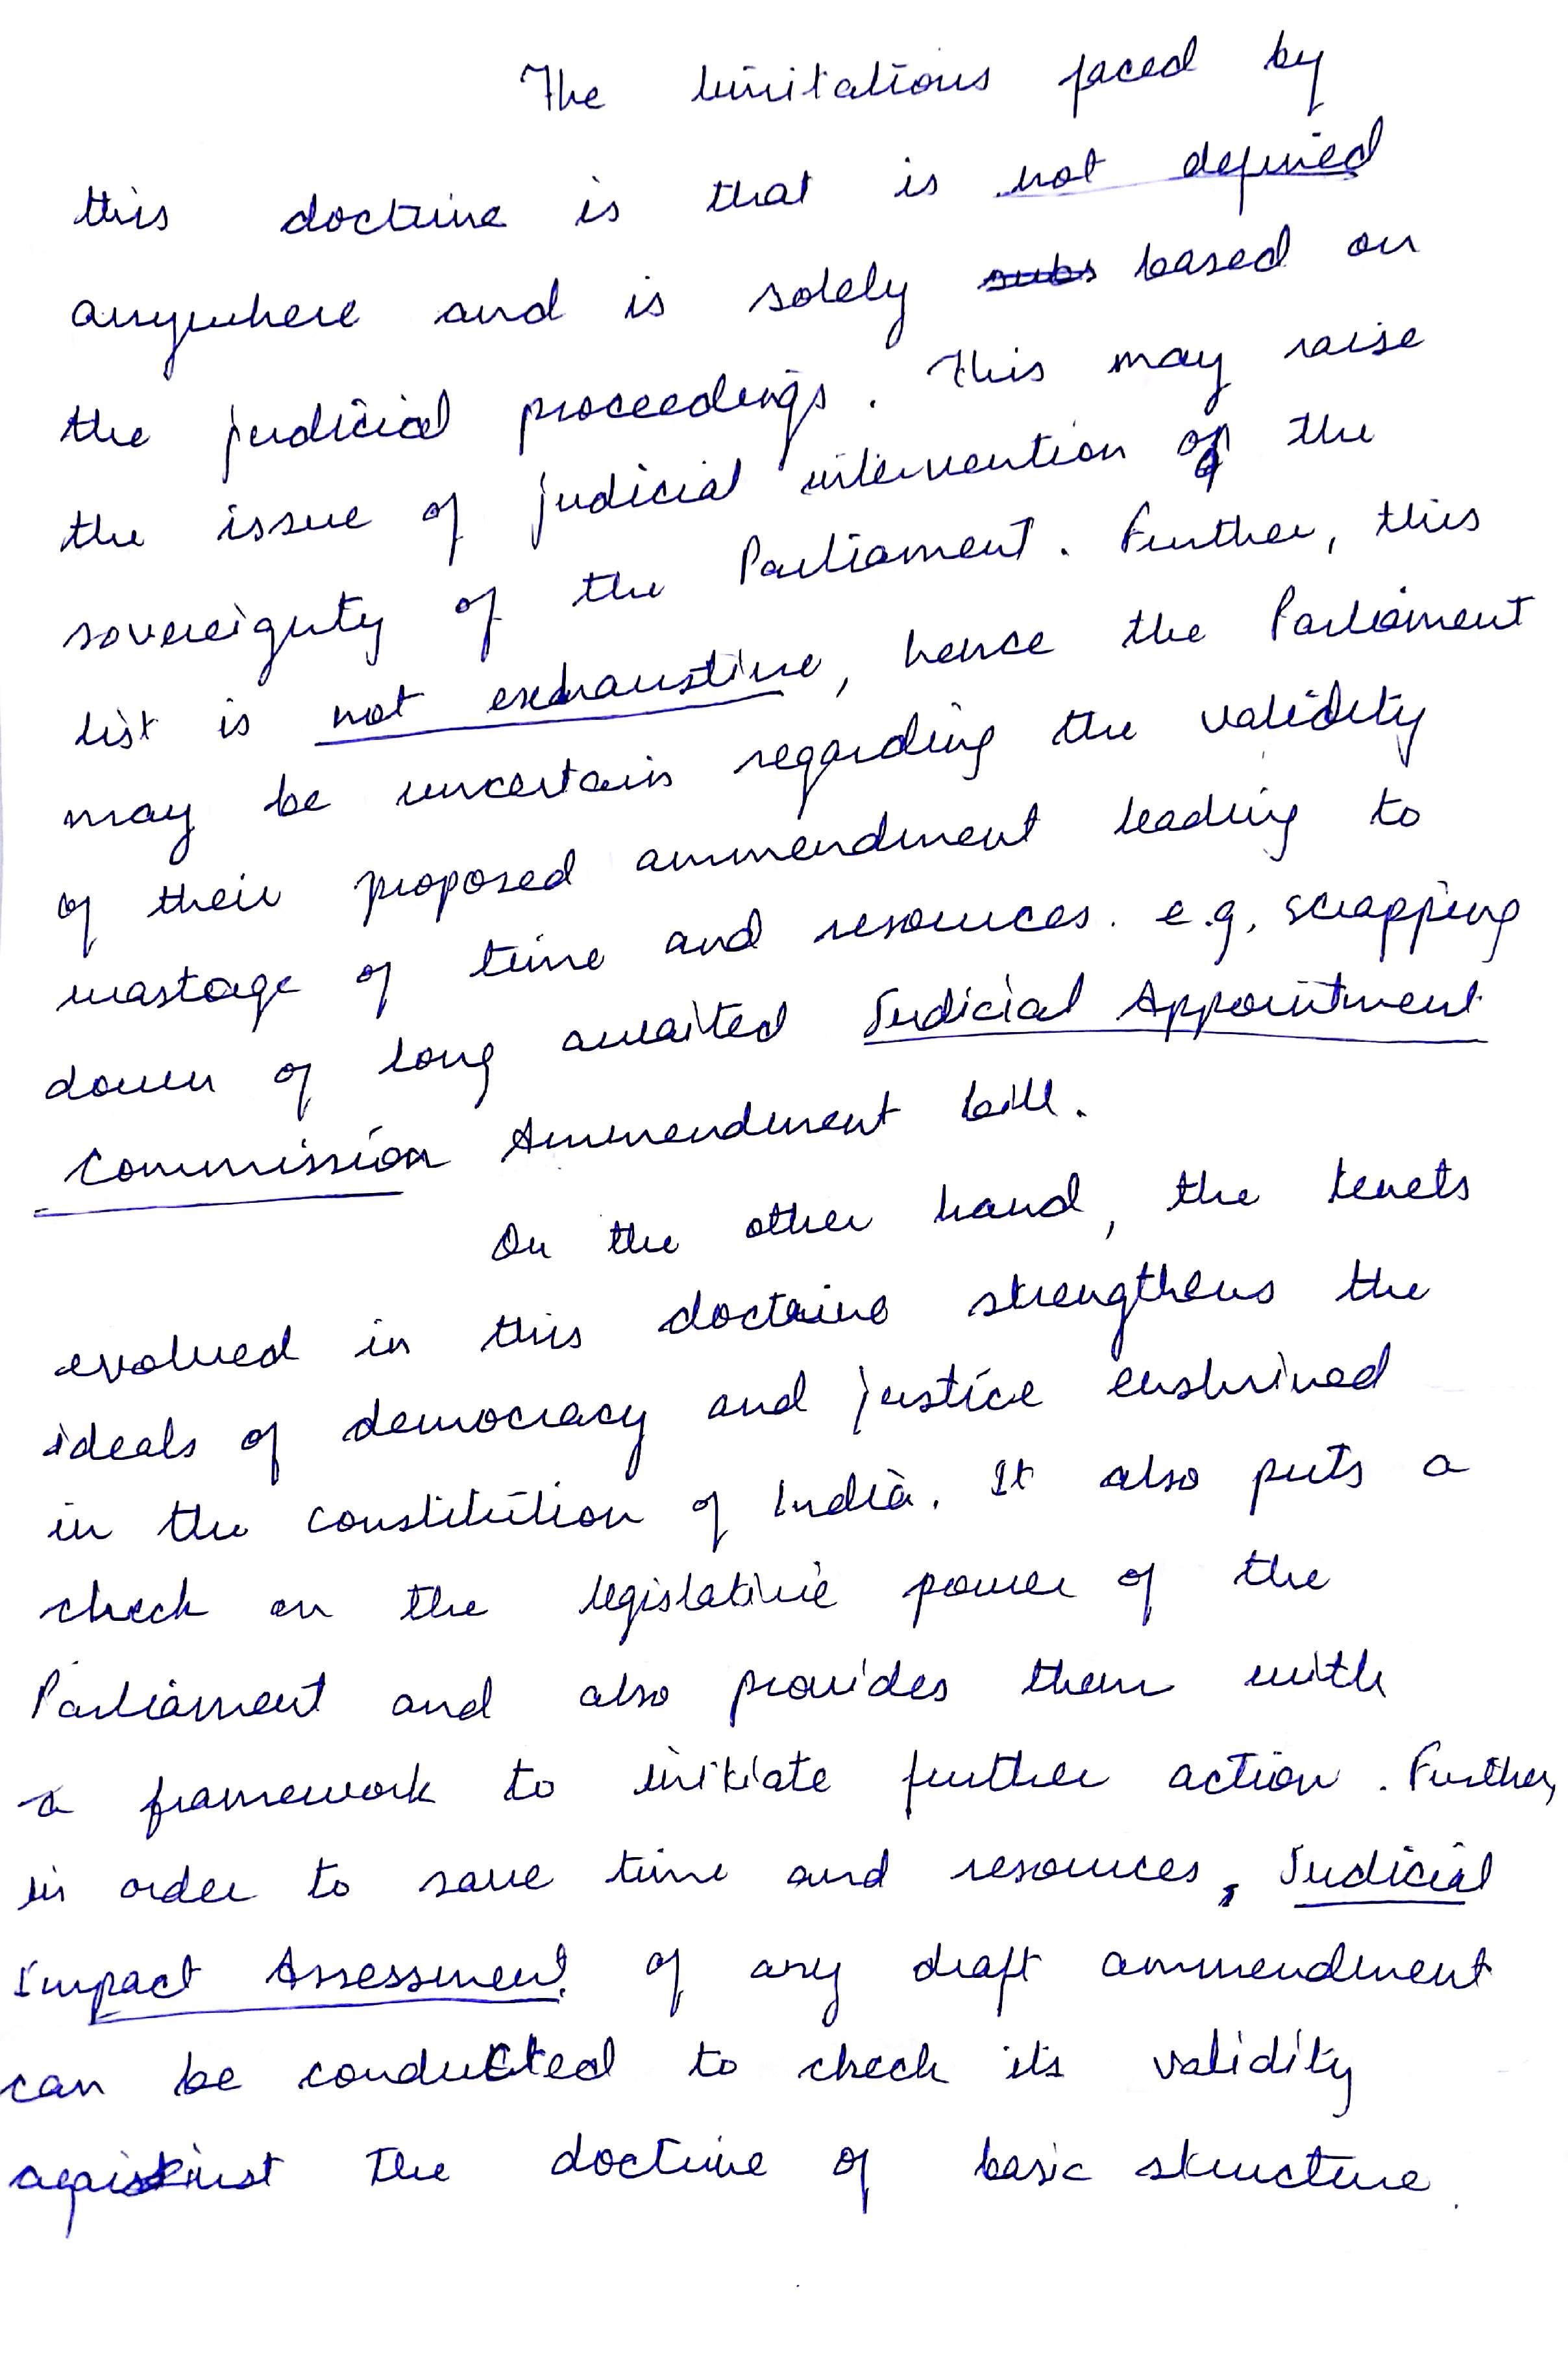 The limitations faced by
this doctrine is that is not defined
anywhere and is solely subs based on
the judicial proceedings. This may raise
the issue of judicial intervention of the
sovereignty of the Parliament. Further, this
list is not exhaustive, hence the Parliament
may be uncertain regarding the validity
of their proposed ammendment leading to
wastage of time and resources. e.g. scrapping
down of long awaited Judicial Appointment
Commission Ammendment bill.
On the other hand, the tenets
evolved in this doctrine strengthens the
ideals of democracy and justice enshrined
in the constitution of India. It also puts a
check on the legislative power of the
Parliament and also provides them with
a framework to initiate further action. Further,
in order to save time and resources, Judicial
Impact Assessment of any draft ammendment
can be conducted to check its validity
against the doctrine of basic structure.